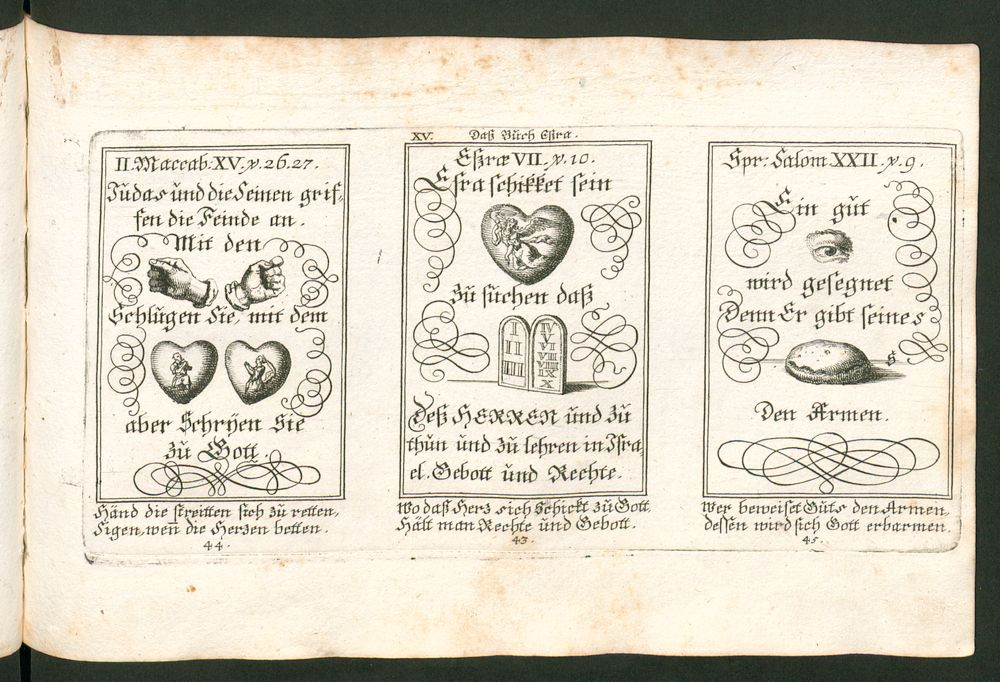 II. Maccab. XV. v. 26. 27.
Judas und die Seinen grif-
fen die Feinde an.
Mit den
Schlugen Sie, mit dem
aber Schryen Sie
zu Gott.
Händ die streitten sich zu retten,
Sigen, weñ die Herzen betten.
44.
XV. Daß Buch Eßra.
Eßræ VII. v. 10.
Esra schikket sein
zu suchen daß
I
II
III
IV
V
VI
VII
VIII
IX
X
Deß HERREN und zu
thun und zu lehren in Isra
el. Gebott und Rechte.
Wo daß Herz sich Schickt zu Gott
Hält man Rechte und Gebott.
43.
Spr: Salom. XXII. v. 9.
Ein gut
wird gesegnet
Denn Er gibt seines
s
Den Armen.
Wer beweiset Guts den Armen,
dessen wird sich Gott erbarmen.
45.